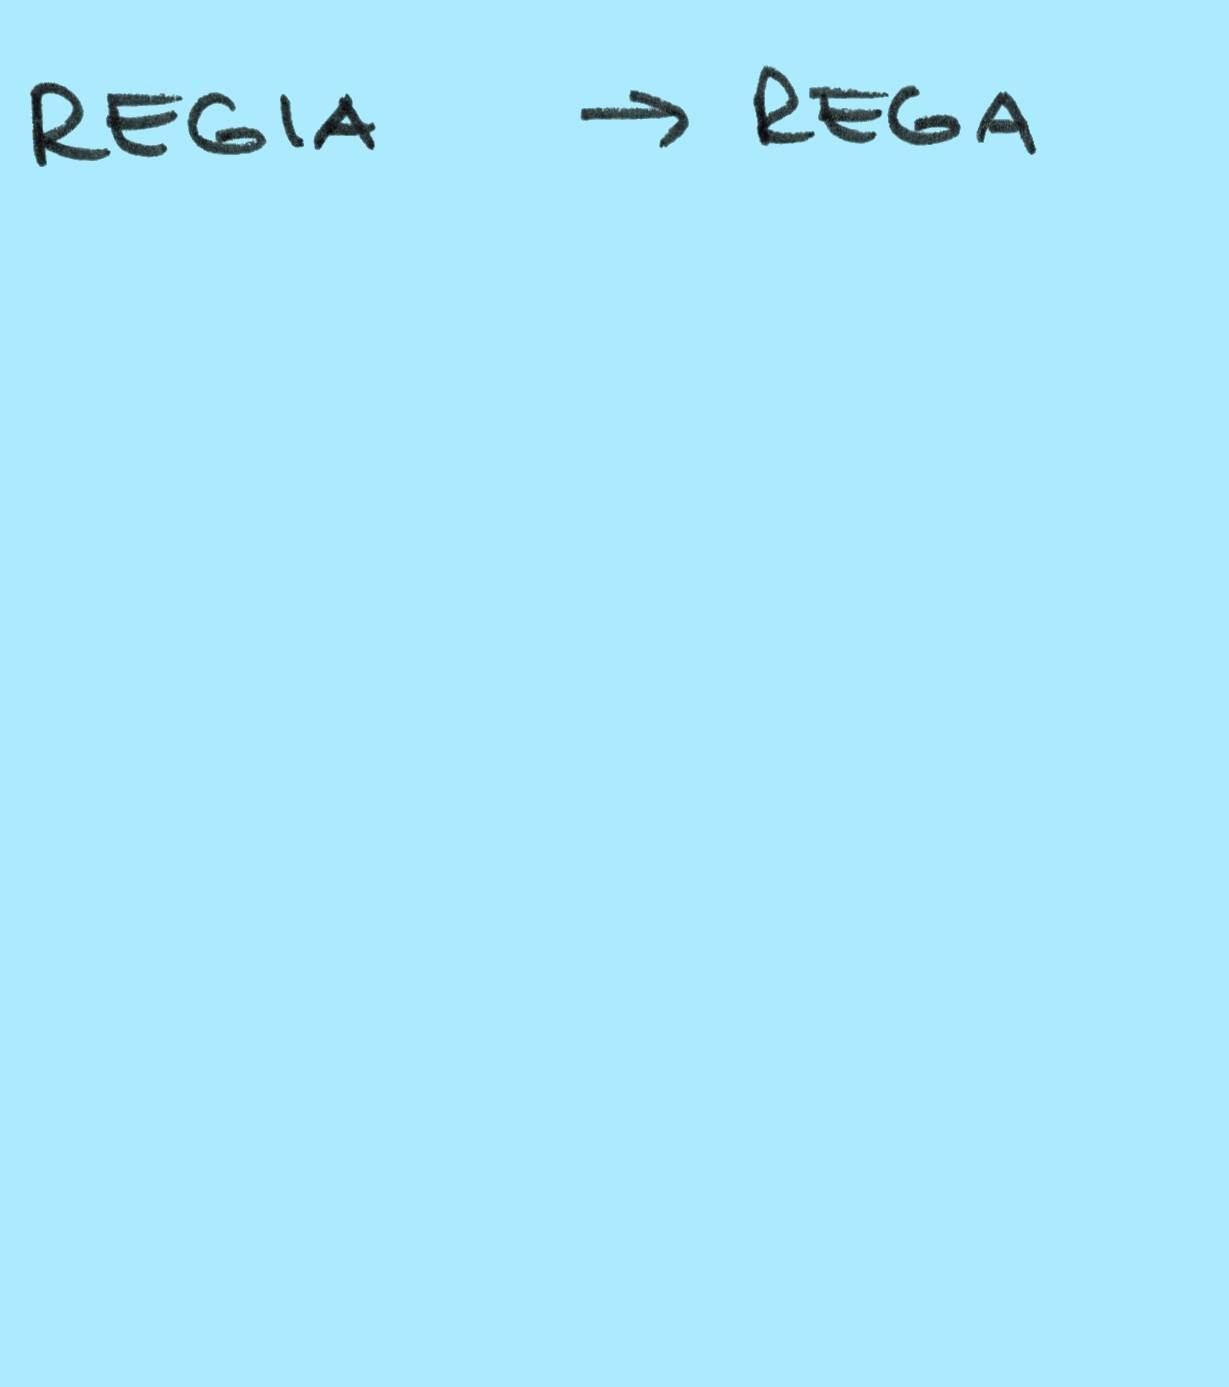 REGIA → REGA